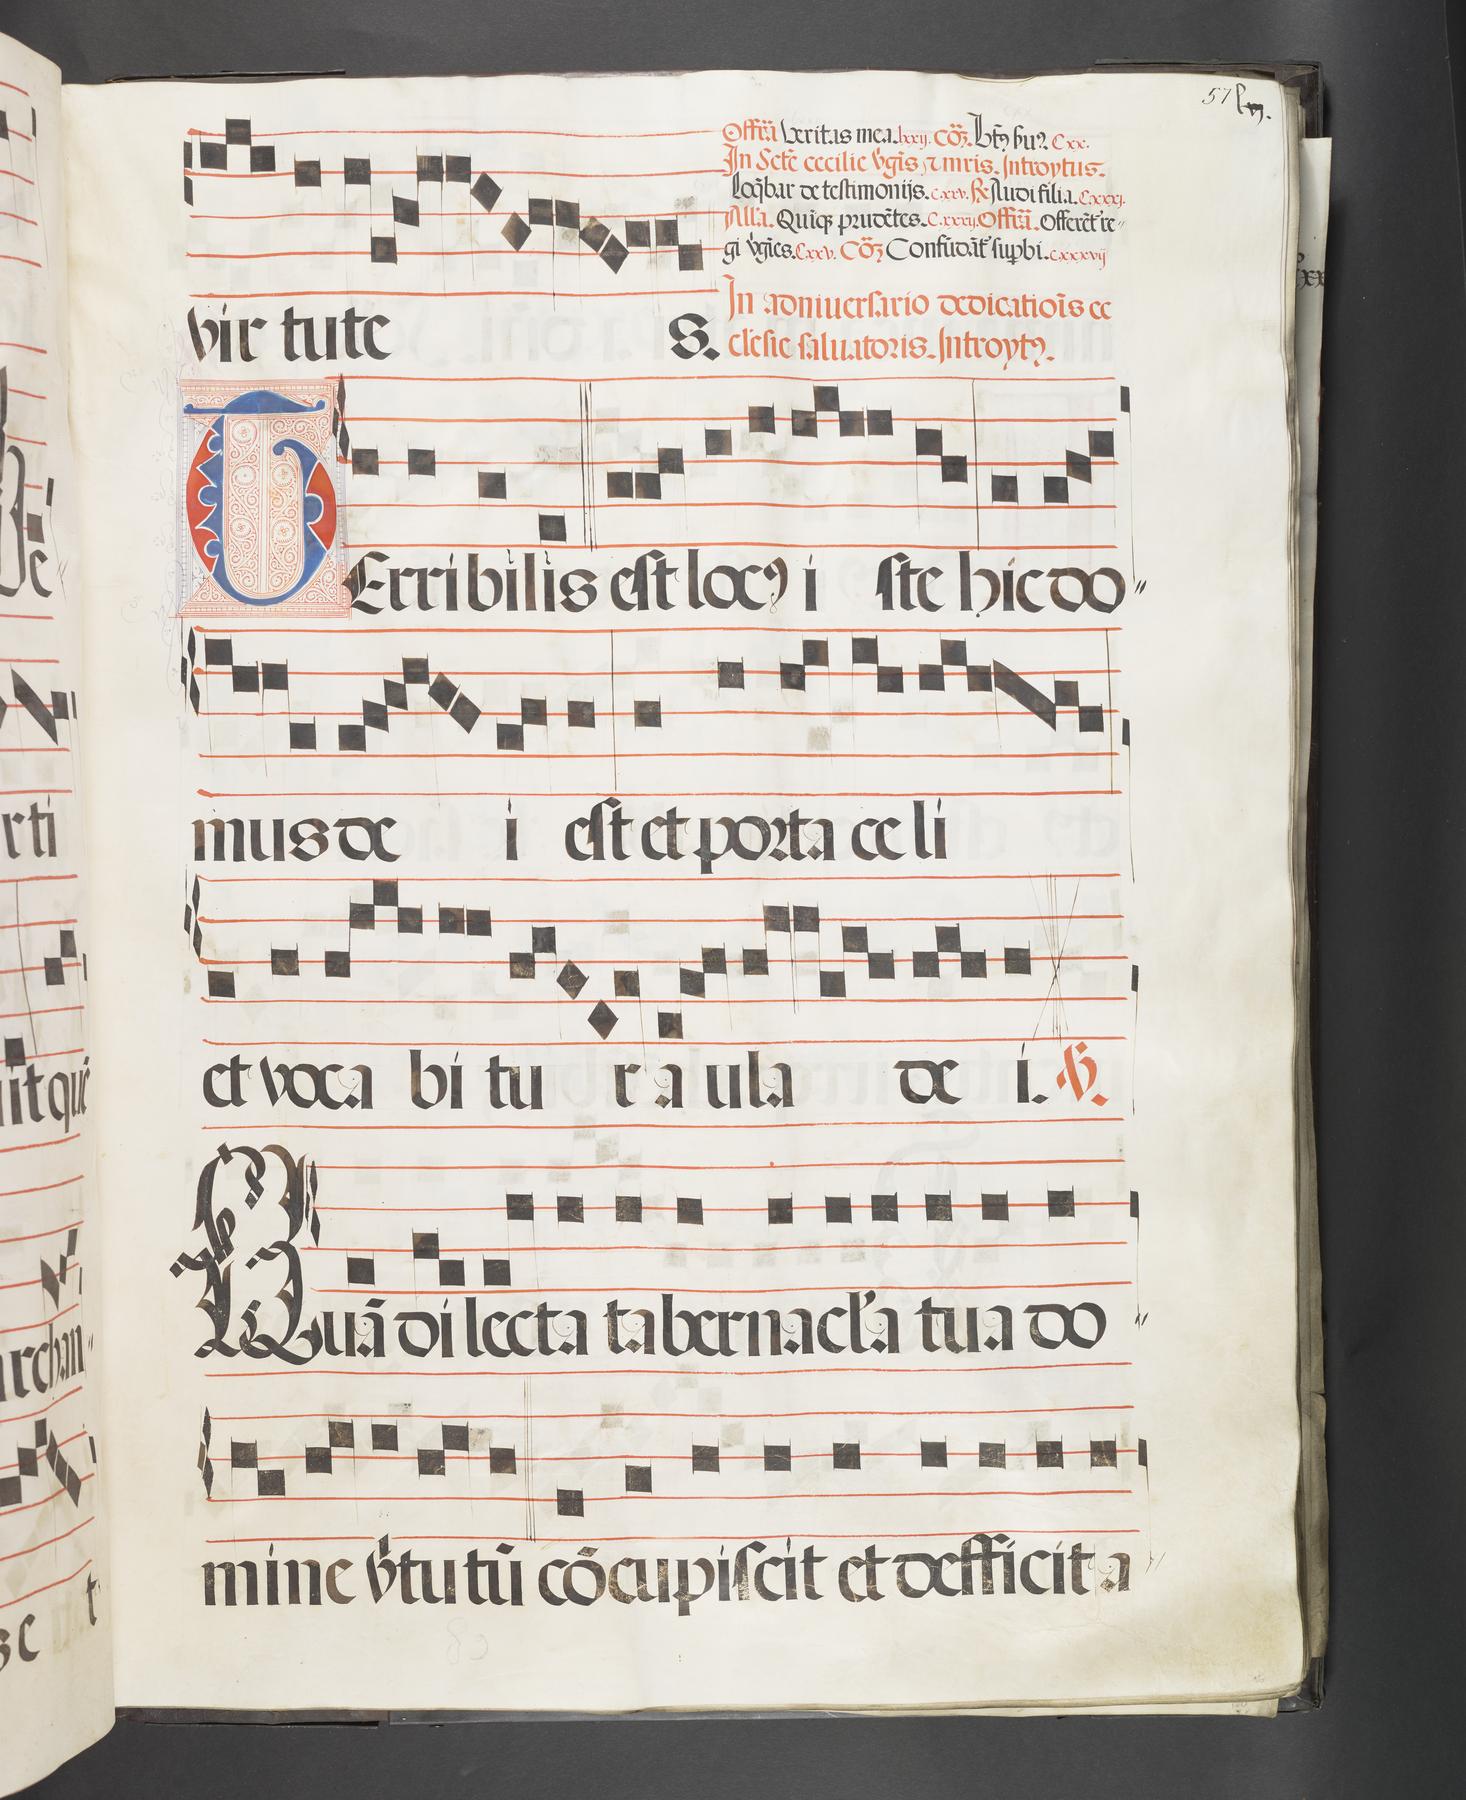 57 lvij.
Offm̄ Veritas mea. lxxij. Cōꝫ. Bt̄ꝰ seruꝰ. Cxx.
In Sctē cecilie v̄gīs ⁊ mr̄is. Introytus.
Loq̄bar de testimonijs. cxxv. R̄ Audi filia. Cxxxj.
All'a. Quīqꝫ prudētes. C.xxxij. Offm̄. Offerēt' re"
gi v̄gīes. Cxxv. Cōꝫ Confūdāt' suꝑbi. cxxxvij
In adniuersario dedicatiōis ec
clesie saluatoris. Introytꝰ.
vir tute s.
TErribilis est locꝰ i ste hic do"
mus de i est et porta ce li
et voca bi tu r a ula de i. V̄.
Quā di lecta tabernacl'a tua do"
mine v̄tu tū cōcupiscit et defficit a"
Ve
rti
uitquē
archan"
se t